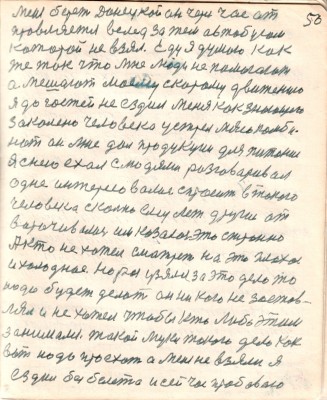 меня берет Донецкой он через час от 50
правляется вслед за тем автобусом
которой не взял. Еду я думаю как
же так что мне люди не помогают
а мешают моему скорому движению
Я до гостей не ездил меня как знающего
закалено человека устрел мясокомби-
нат он мне дал продукции для питании
Я с нею ехал с людями разговаривал
одне интересовались спросит в такого
человека сколько ему лет другии от
ворачивались им казалось это странно
Никто не хотел смотреть на это плохое
и холодное но раз узялся за это дело то
надо будет делать он никого не застав-
лял и не хотел чтобы кто либо этим
занимался. такой муки такого дела как
вот надо проехать а меня не взяли я
ездил без билета и сейчас пробоваю